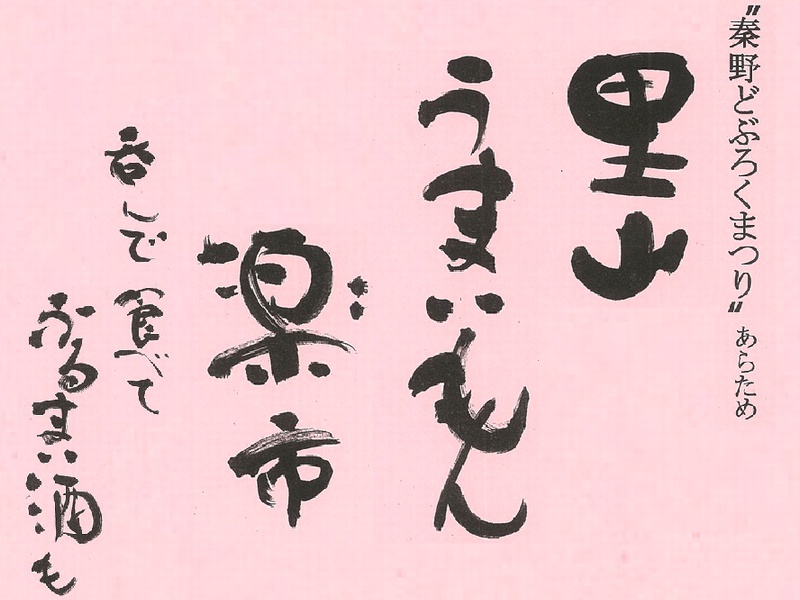 〝秦野どぶろくまつり〟あらため
里山
うまいもん
楽市
呑んで食べて
ふるまい酒も